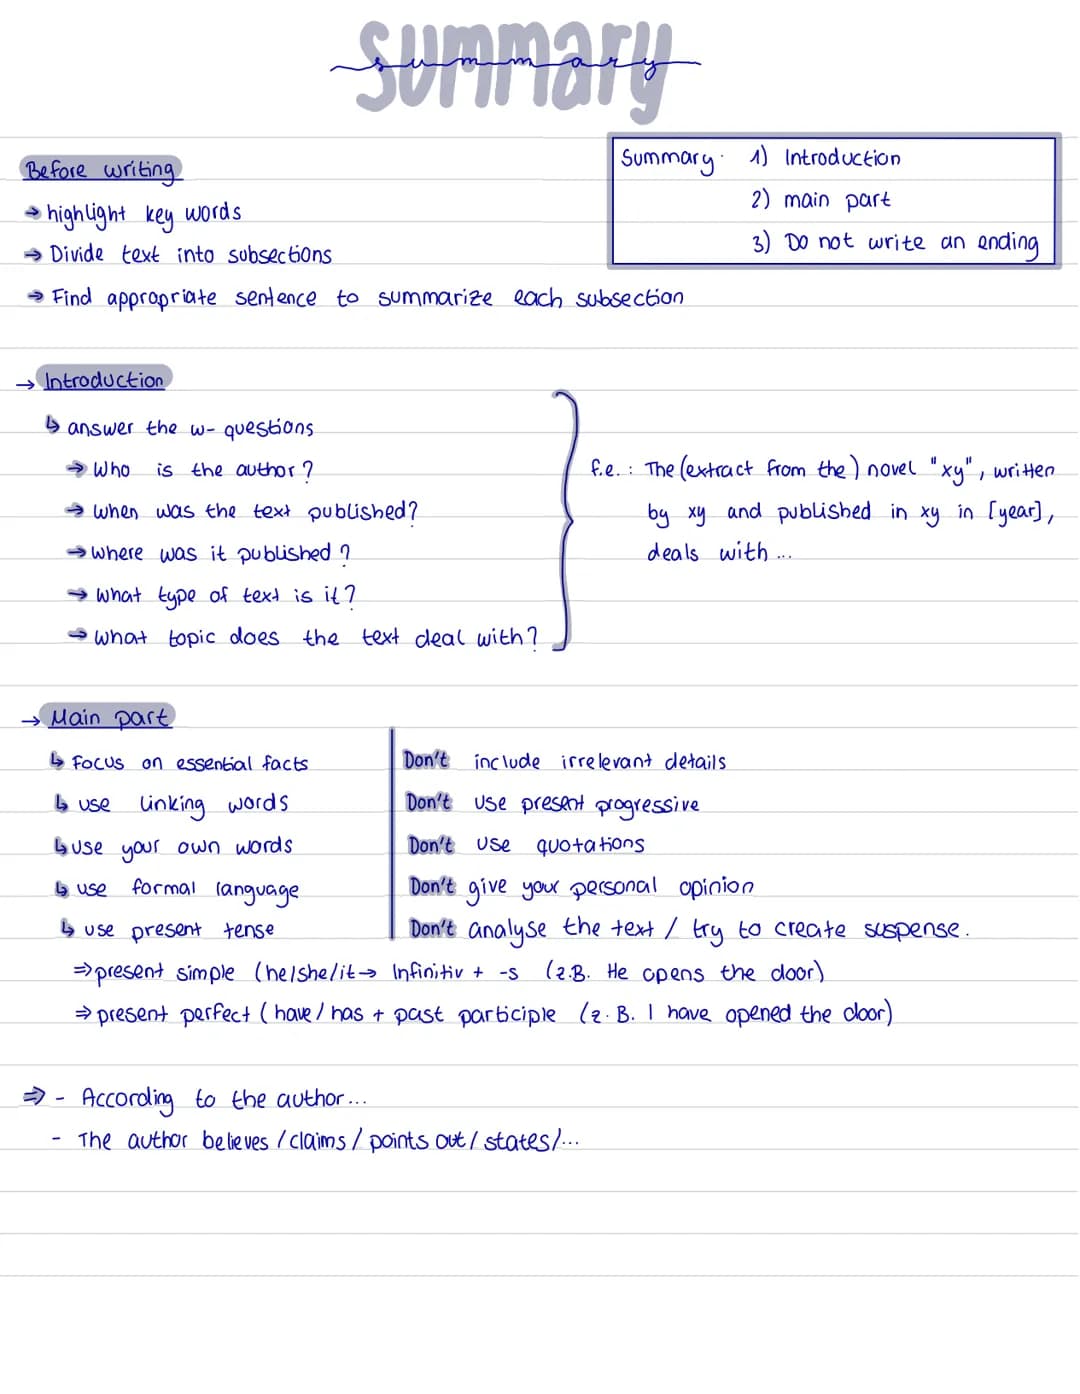 summary
summary
Before writing
→ highlight key words
→ Divide text into subsections
→ Find appropriate sentence to summarize each subsection
Summary: 1) Introduction
2) main part
3) Do not write an ending
→ Introduction
↳ answer the w-questions
→ Who is the author?
→ when was the text published?
→ where was it published?
→ what type of text is it?
→ what topic does the text deal with?
f.e. : The (extract from the) novel "xy", written
by xy and published in xy in [year],
deals with...
→ Main part
↳ Focus on essential facts
↳ use linking words
↳ use your own words
↳ use formal language
↳ use present tense
Don't include irrelevant details
Don't use present progressive
Don't use quotations
Don't give your personal opinion
Don't analyse the text / try to create suspense.
⇒ present simple (he/she/it → Infinitiv + -s (z.B. He opens the door)
⇒ present perfect (have/has + past participle (z.B. I have opened the door)
⇒ - According to the author...
- The author believes / claims / points out / states/...